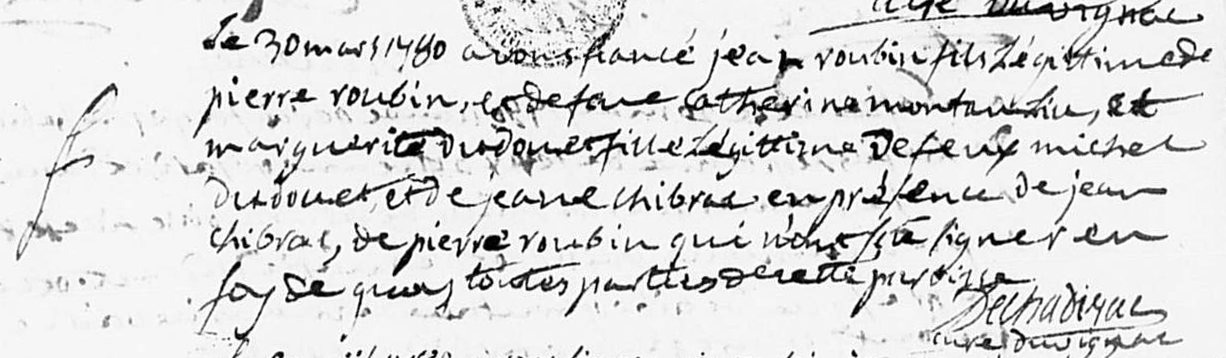 curé duvignac
Le 30 mars 1780 avons fiancé jean roubin fils Légittime de
pierre roubin, et de feue catherine, et
marguerite dudouet fille Légittime De feux michel
dudouet, et de jeane chibrac en présence De jean
chibrac, de pierre roubin qui n'ont sçu signer en
foy de quoy toutes parties de cette paroisse
Dechadirac
curé duvignac